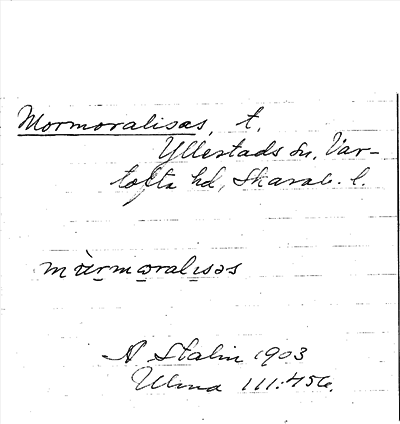 Mormoralisas, t.
Yllestads sn, Var-
tofta hd, Skarab. l.
mùrmoralisəs
N Stalin 1903
Ulma 111:456.